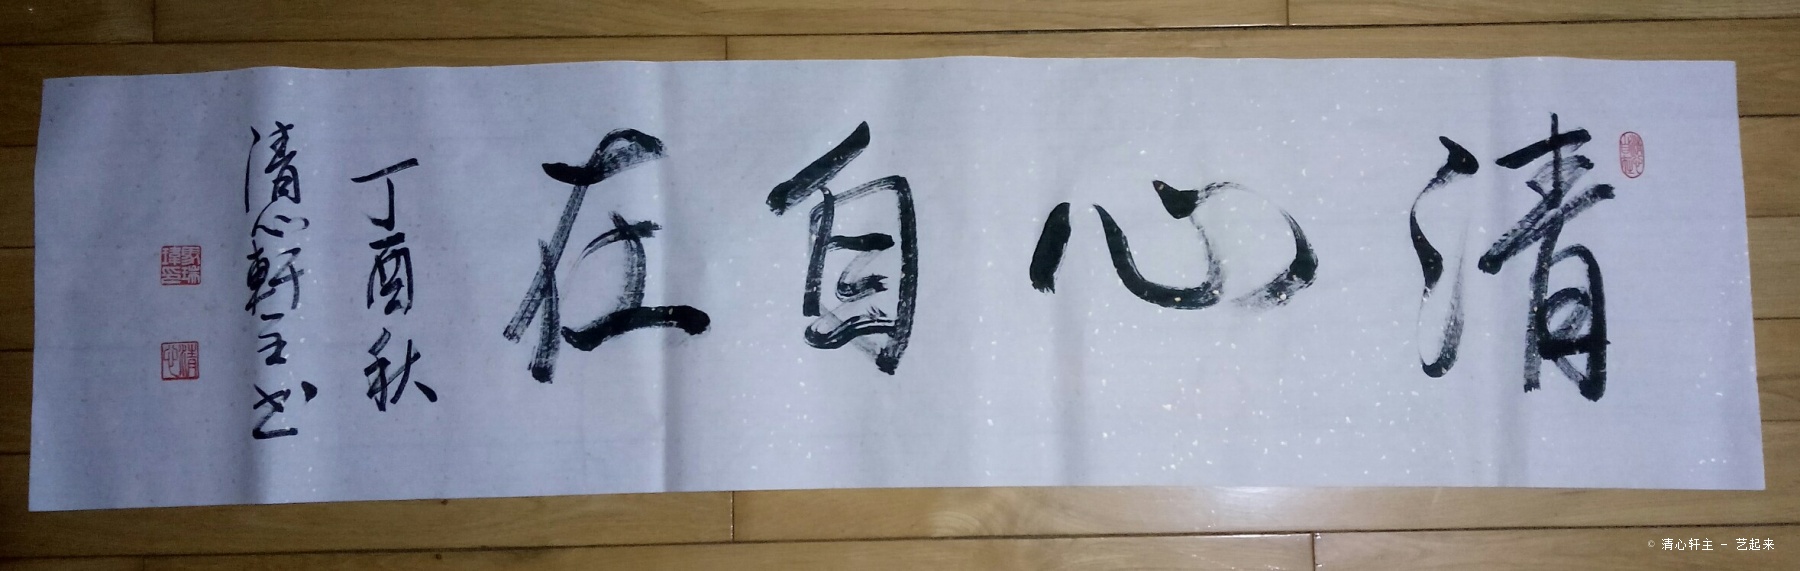 清心自在
丁酉秋
清心軒主书
清心
© 清心轩主 - 艺起来